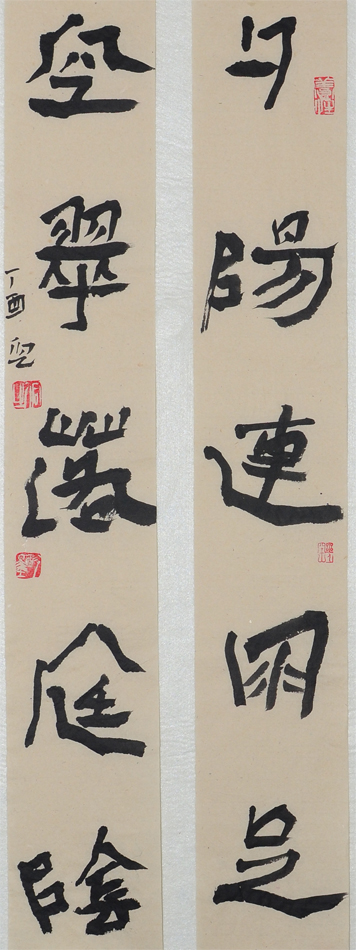 夕陽連雨足
空翠落庭陰
丁酉